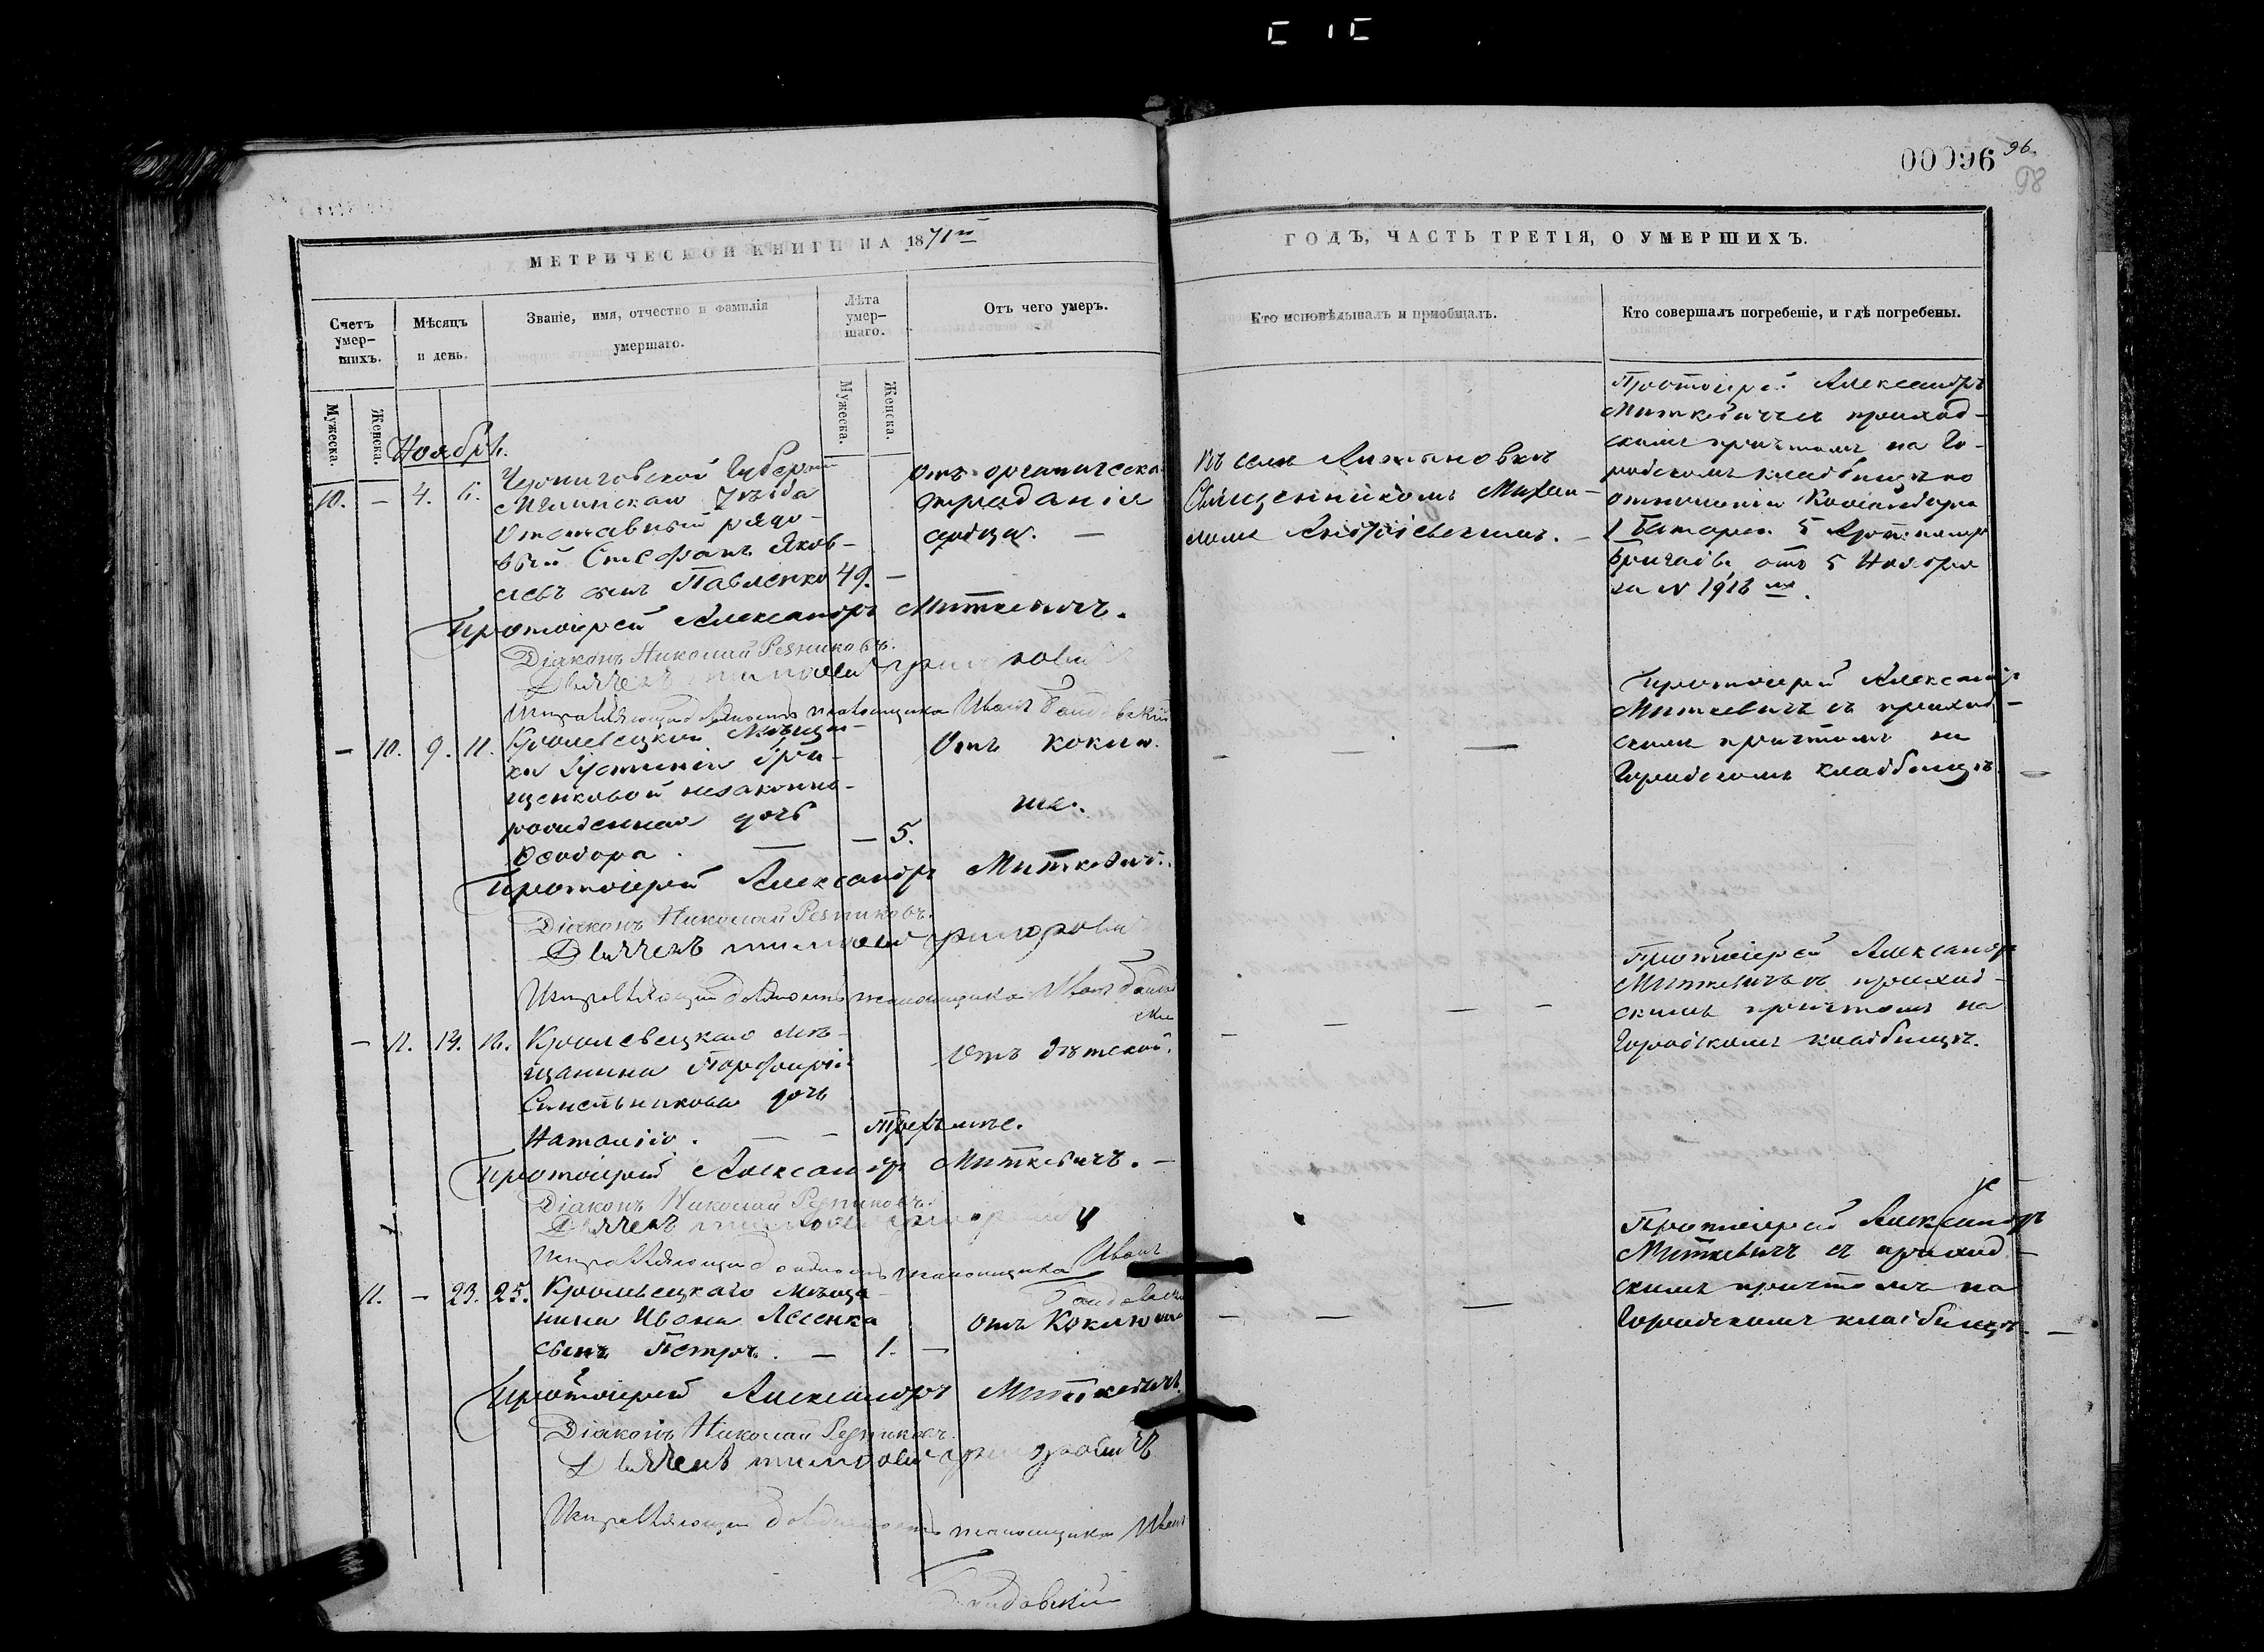 00096
96.
98
МЕТРИЧЕСКОЙ КНИГИ НА 1871й
ГОДЪ, ЧАСТЬ ТРЕТІЯ, О УМЕРШИХЪ.
Счетъ умер-шихъ.
Мѣсяцъ и день.
Званіе, имя, отчество и фамилія умершаго.
Лѣта умер-шаго.
Отъ чего умеръ.
Кто исповѣдывалъ и пріобщалъ.
Кто совершалъ погребеніе, и гдѣ погребены.
Мужеска.
Женска.
Мужеска.
Женска.
Ноябрь.
10. — 4. 6.
Черниговской Губерніи
Мглинскаго Уѣзда
Отставный рядо-
вый Стефанъ Яков-
левъ сынъ Павленко 49. —
отъ органическа
страданія
сердца. —
Въ селѣ
Священникомъ Михаи-
ломъ
Протоіерей Александръ
Миткевичъ съ приход-
скимъ причтомъ на Го-
родскомъ кладбищѣ по
отношенію Командира
1 Батареи 5
Бригады отъ 5 Ноября
за N 1918
Протоіерей Александръ Миткевичъ.
Діаконъ Николай Резниковъ.
Дьячекъ
Исправляющій должность пономаря Иванъ
— 10. 9. 11.
Кролевецкой Мѣщан-
ки Іустиніи
щенковой незаконно-
рожденная дочь
Ѳеодора. — — 5.
Отъ коклю
ша.
Протоіерей Александръ
Миткевичъ съ приход-
скимъ причтомъ на
Городскомъ кладбищѣ. —
Протоіерей Александръ Миткевичъ.
Діаконъ Николай Резниковъ.
Дьячекъ
Исправляющій должность Иванъ
— 11. 14. 16.
Кролевецкаго мѣ-
щанина Порфирія
Синельникова дочь
Наталія. — — трехъ лѣтъ.
Отъ дѣтской.
Протоіерей Александръ
Миткевичъ съ приход-
скимъ причтомъ на
Городскомъ кладбищѣ.
Протоіерей Александръ Миткевичъ. —
Діаконъ Николай Резниковъ.
Дьячекъ
Исправляющій должность Иванъ
11. — 23. 25.
Кролевецкаго мѣща-
нина Ивана Лесенка
сынъ Петръ. — 1. —
отъ Коклюша
Протоіерей Александръ
Миткевичъ съ приход-
скимъ причтомъ на
Городскомъ кладбищѣ. —
Протоіерей Александръ Миткевичъ.
Діаконъ Николай Резниковъ.
Дьячекъ
Исправляющій должность Иванъ